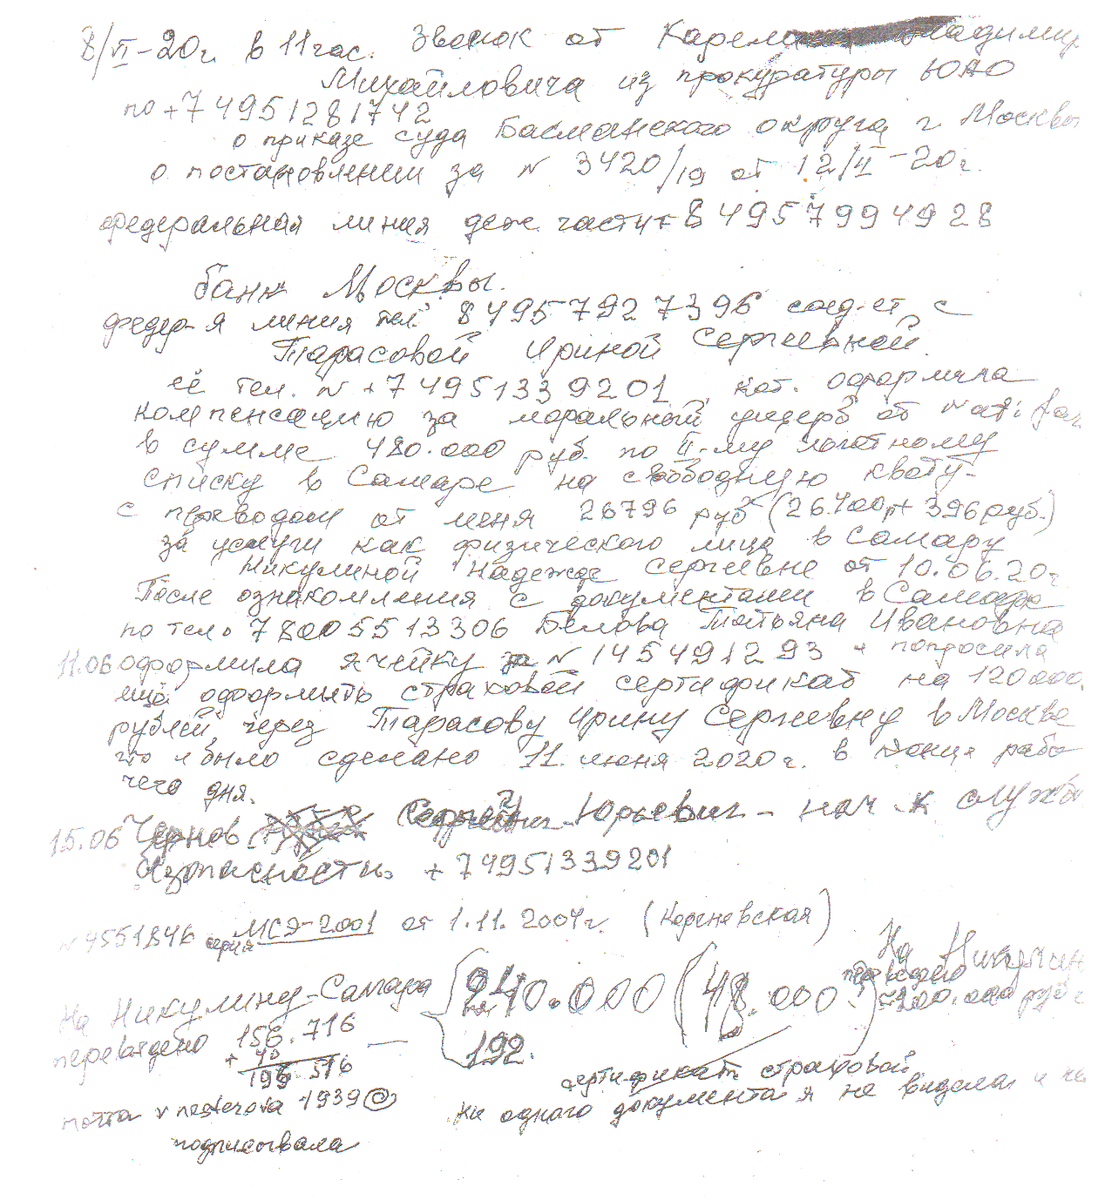 8/VI-20г. в 11 час. Звонок от Владимир
Михайловича из прокуратуры ЮАО
по +7 4951281742
о приказе суда Басманского округа г. Москвы
о постановлении за N 3420/19 от 12/II-20г.
федеральная линия деж. части + 84957994928
банк Москвы.
федер-я линия тел. 84957927396 соед-ет с
Тарасовой Ириной Сергеевной.
её тел. N +7 4951339201, кот. оформляла
компенсацию за моральный ущерб от
в сумме 480.000 руб. по II-му льготному
списку в Самаре на свободную квоту-
с переводом от меня 26796 руб (26.400р + 396 руб.)
за услуги как физического лица в Самару
Никулиной Надежде Сергеевне от 10.06.20г
После ознакомления с документами в Самаре
по тел. 78005513306 Белова Татьяна Ивановна
11.06 оформила ячейку N 145491293 и попросила
ещё оформить страховой сертификат на 120000.
рублей через Тарасову Ирину Сергеевну в Москве
что и было сделано 11. июня 2020г. в конце рабо
чего дня.
15.06 Чернов Сергей Юрьевич - нач-к служб
безопасности +74951339201
N 4551846 серия МСЭ-2001 от 1.11.2004г. (Корневская)
На Никулину-Самара 240.000 (48.000.)
На Никулин
переведено 7200.000 руб
переведено 156.716
+ 40
196.516
192.
сертификат страховой
почта v nesterova 1939@ ни одного документа я не видела и не
подписывала